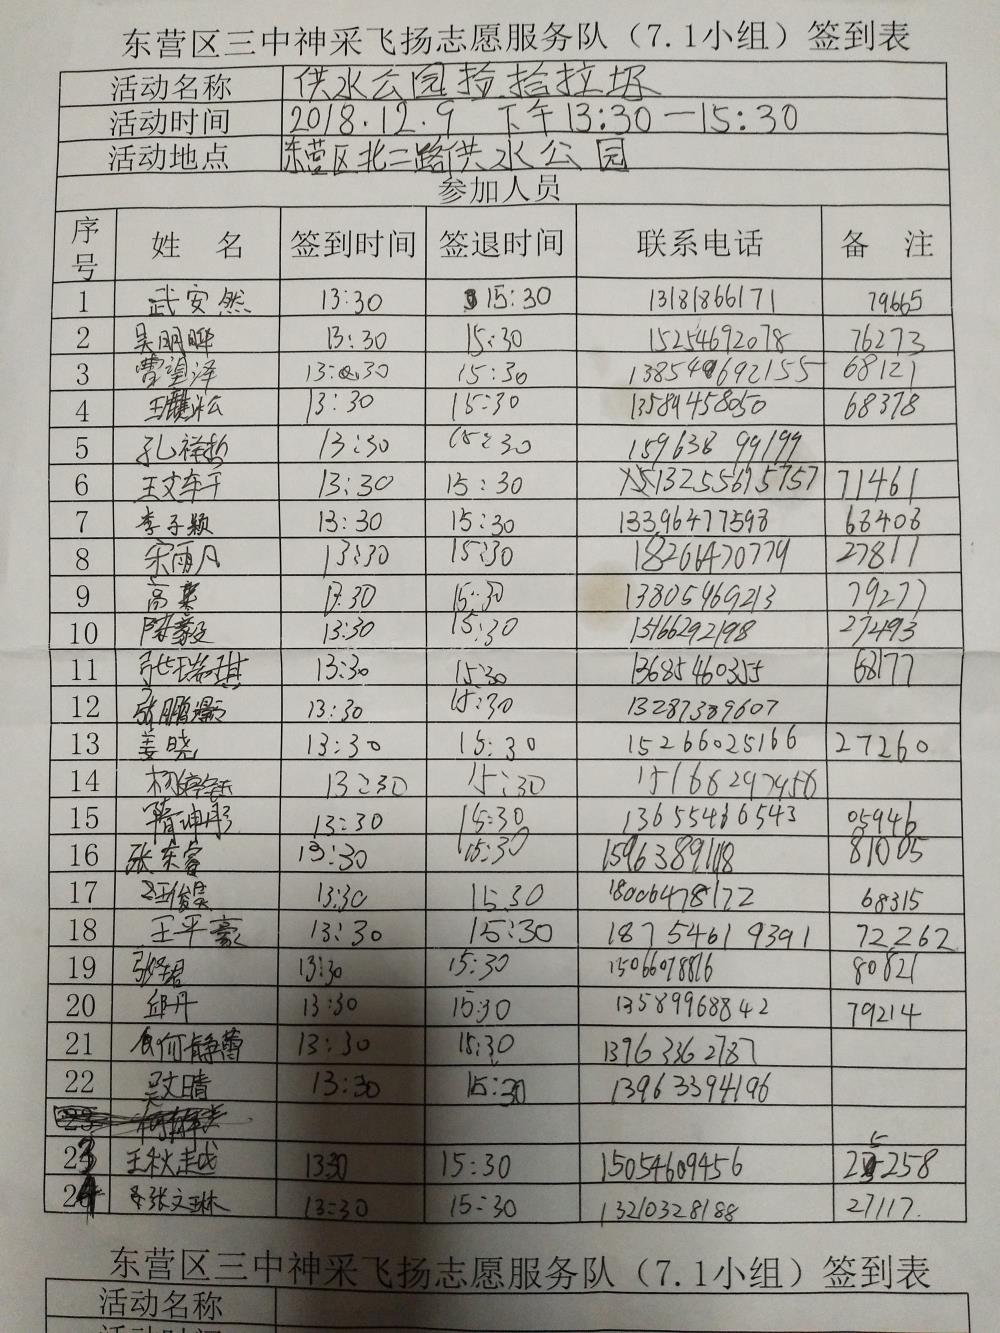 东营区三中神采飞扬志愿服务队（7.1小组）签到表
活动名称 供水公园捡拾垃圾
活动时间 2018.12.9 下午13:30—15:30
活动地点 东营区北二路供水公园
参加人员
序号 姓 名 签到时间 签退时间 联系电话 备 注
1 武安然 13:30 15:30 13181866171 79665
2 吴明晔 13:30 15:30 15254692078 76273
3 曹望泽 13:30 15:30 13854692155 68121
4 13:30 15:30 13589458050 68378
5 孔祥哲 13:30 15:30 15963899199
6 13:30 15:30 13255615757 71461
7 李子颖 13:30 15:30 13396477598 68408
8 宋雨凡 13:30 15:30 18266470779 27811
9 高 13:30 15:30 13805469213 79277
10 陈 13:30 15:30 15166292198 27493
11 张瑞琪 13:30 15:30 13685460355 68177
12 张鹏灏 13:30 15:30 13287389607
13 姜晓 13:30 15:30 15266025166 27260
14 13:30 15:30
15 隋坤彤 13:30 15:30 13655466543 05946
16 张东睿 13:30 15:30 15963891118 81005
17 13:30 15:30 18006478172 68315
18 王平豪 13:30 15:30 18754619391 72262
19 13:30 15:30 15066078816 80821
20 邱丹 13:30 15:30 13589968842 79214
21 何静蕾 13:30 15:30 13963362787
22 吴文晴 13:30 15:30 13963394196
23 王秋越 1330 15:30 15054609456 25258
24 张文琳 13:30 15:30 13210328188 27117.
东营区三中神采飞扬志愿服务队（7.1小组）签到表
活动名称
活动时间